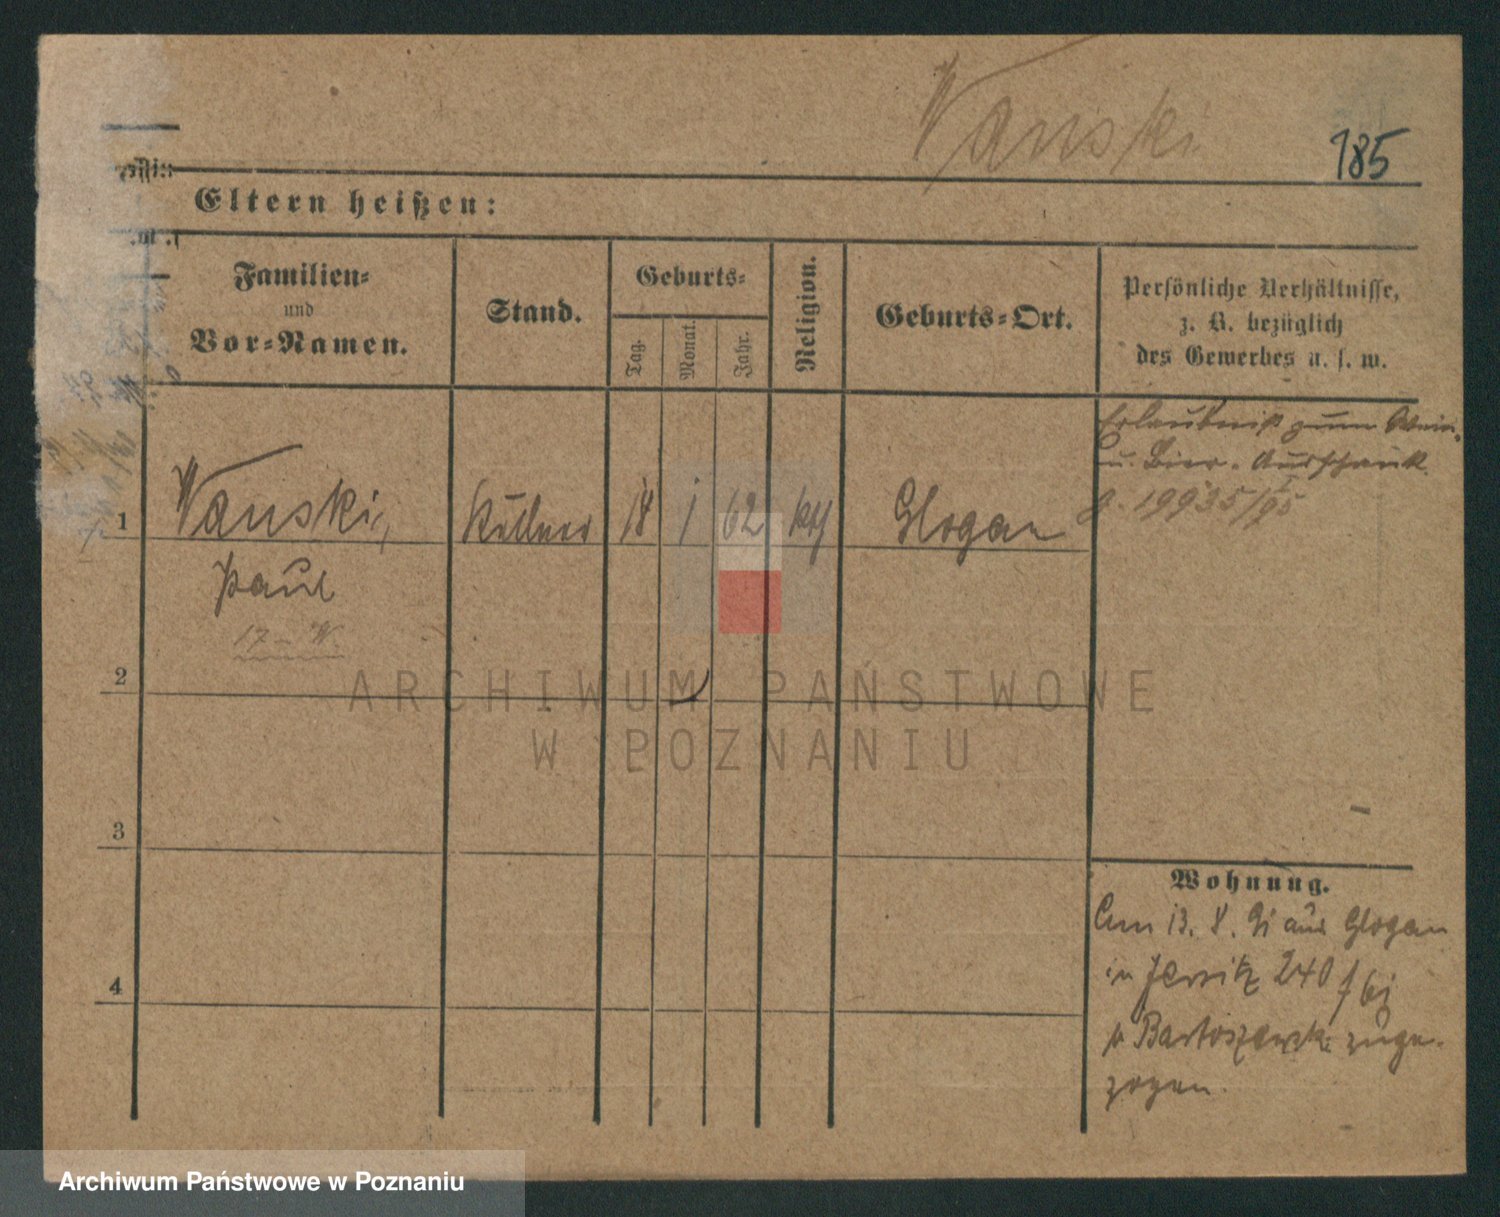 Wanski
185
Eltern heißen:
Familien=
und
Vor=Namen.
Stand.
Geburts=
Tag.
Monat.
Jahr.
Religion.
Geburts=Ort.
Persönliche Verhältnisse,
z. B. bezüglich
des Gewerbes u. s. w.
Erlaubniß zum Wein
u. Bier-Ausschank
J. 19935/95
1
Wanski, Kellner 18 1 62 kth Glogau
Paul
17 - W.
2
3
4
Wohnung.
Am 13. 8. 91 aus Glogau
in Jersitz 240 f bei
Bartoszewski zuge-
zogen.
ARCHIWUM PAŃSTWOWE
W POZNANIU
Archiwum Państwowe w Poznaniu